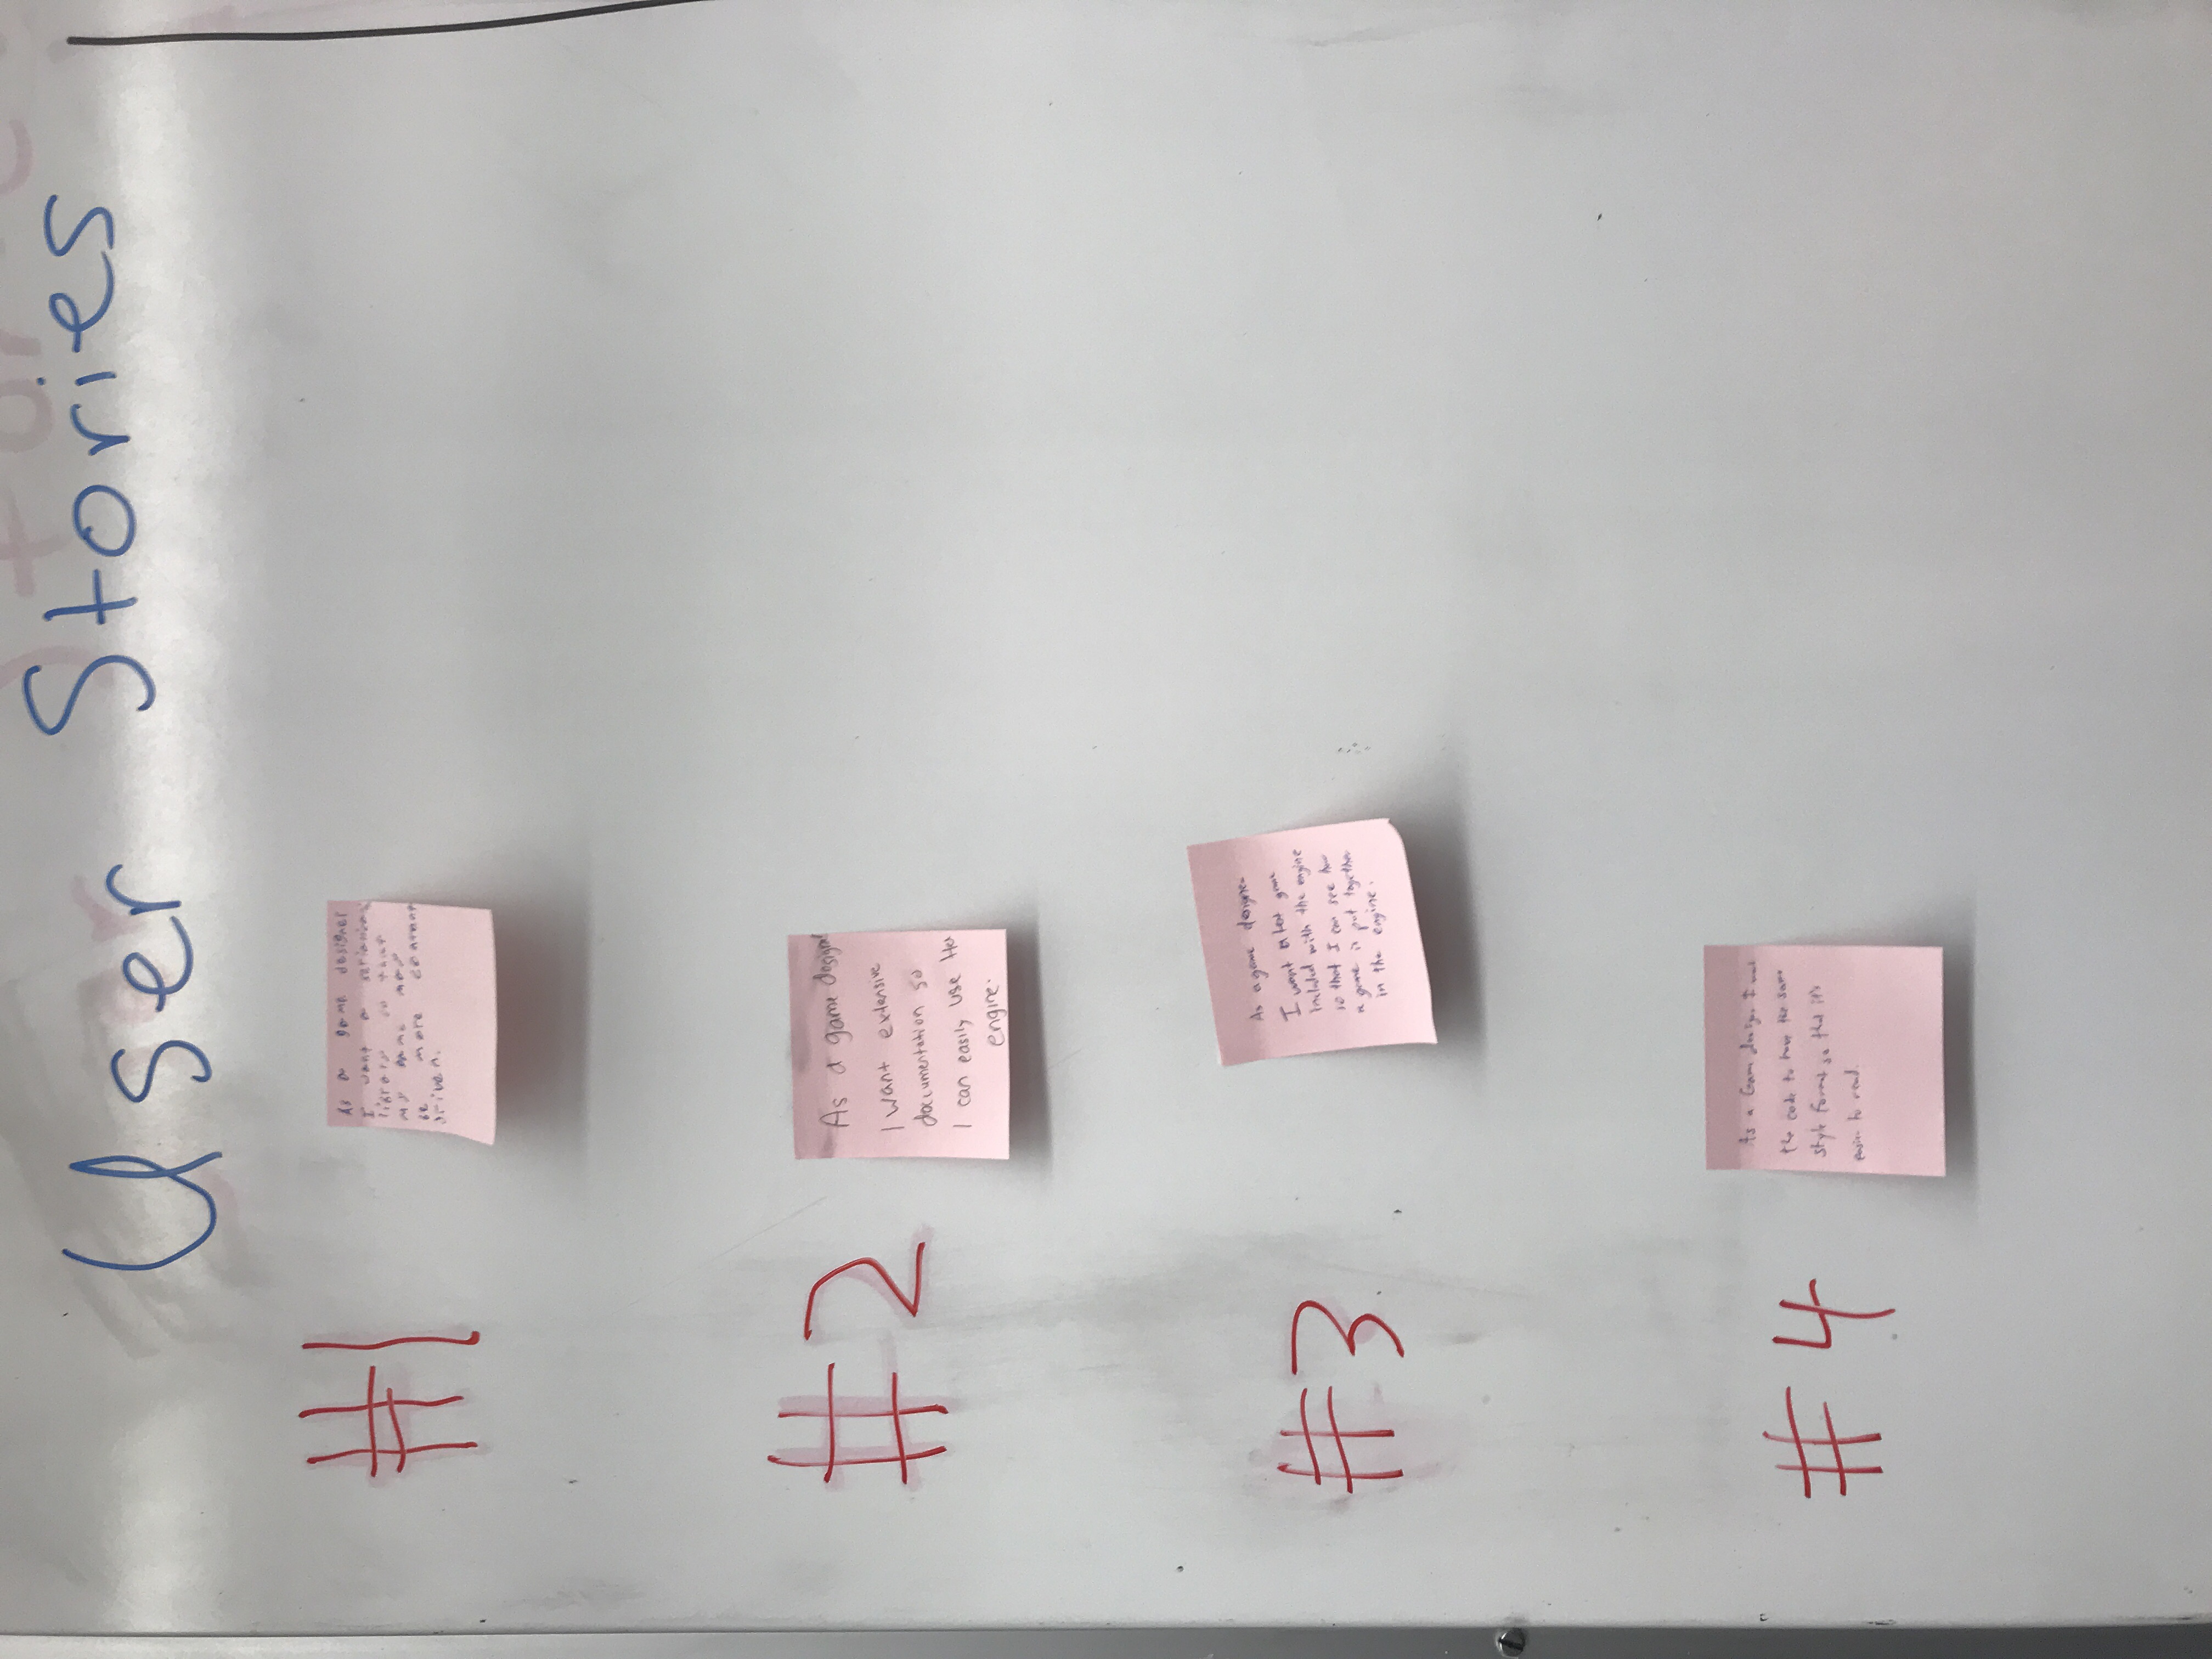 User Stories
#1
As a game designer
I want a
library so that
my game may
be more content
driven.
#2
As a game designer
I want extensive
documentation so
I can easily use the
engine.
#3
As a game designer
I want a test game
included with the engine
so that I can see how
a game is put together
in the engine.
#4
As a Game designer I want
the code to have the same
style format so that it's
easier to read.